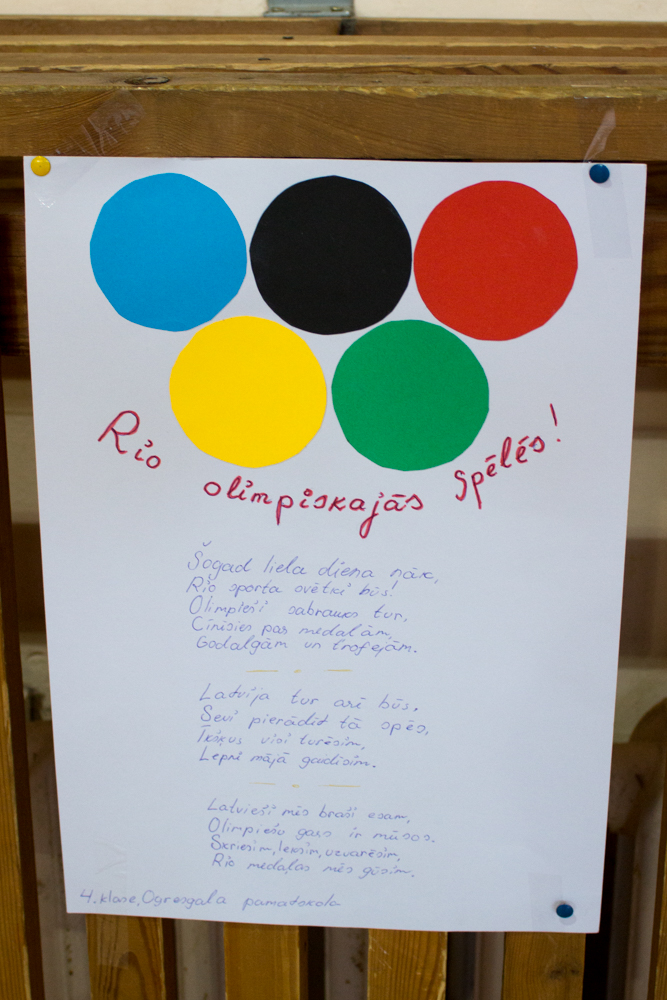 Rio olimpiskajās spēlēs!
Šogad liela diena nāk,
Rio sporta svētki būs!
Olimpieši sabrauks tur,
Cīnīsies pas medaļām,
Godalgām un trofejām.
Latvija tur arī būs,
Sevi pierādīt tā spēs,
Īkšķus visi turēsim,
Lepni mājā gaidīsim.
Latvieši mēs braši esam,
Olimpiešu gars ir mūsos.
Skriesim, leksim, uzvarēsim,
Rio medaļas mēs gūsim.
4. klase, Ogresgala pamatskola